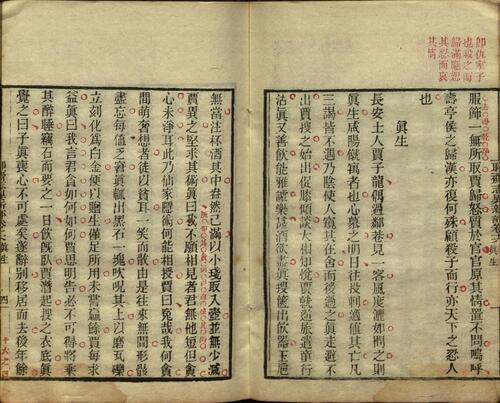 卽仇家子
也殺之而
其忍而哀
其情
服飾一無所取賈歸怒質於官官原其情置不問嗚呼
壽亭侯之歸漢亦復何殊顧殺子而行亦天下之忍人
也
眞生
長安士人賈子龍偶過鄰巷見一客風度灑如問之則
眞生咸陽僦寓者也心慕之明日往投刺適値其亡凡
三謁皆不遇乃陰使人窺其在舍而後過之眞走避不
出賈搜之始出促膝傾談大相知悅賈就逆旅遣童行
沽眞又善飲能雅謔樂甚酒欲盡眞搜篋出飲器玉卮
無當注杯酒其中盎然已滿以小琖取入壺並無少減
賈異之堅求其術眞曰我不願相見者君無他短但貪
心未淨耳此乃仙家隱術何能相授賈曰寃哉我何貪
間萌奢想者徒以貧耳一笑而散由是往來無間形骸
盡忘每値乏窘眞輒出黑石一塊吹呪其上以磨瓦礫
立刻化爲白金便以贈生僅足所用未嘗贏餘賈每求
益眞曰我言君貪如何如何賈思明告必不可得將乘
其醉睡竊石而要之一日飲旣臥賈潛起搜之衣底眞
覺之曰子眞喪心不可處矣遂辭別移居而去後年餘
眞生 四